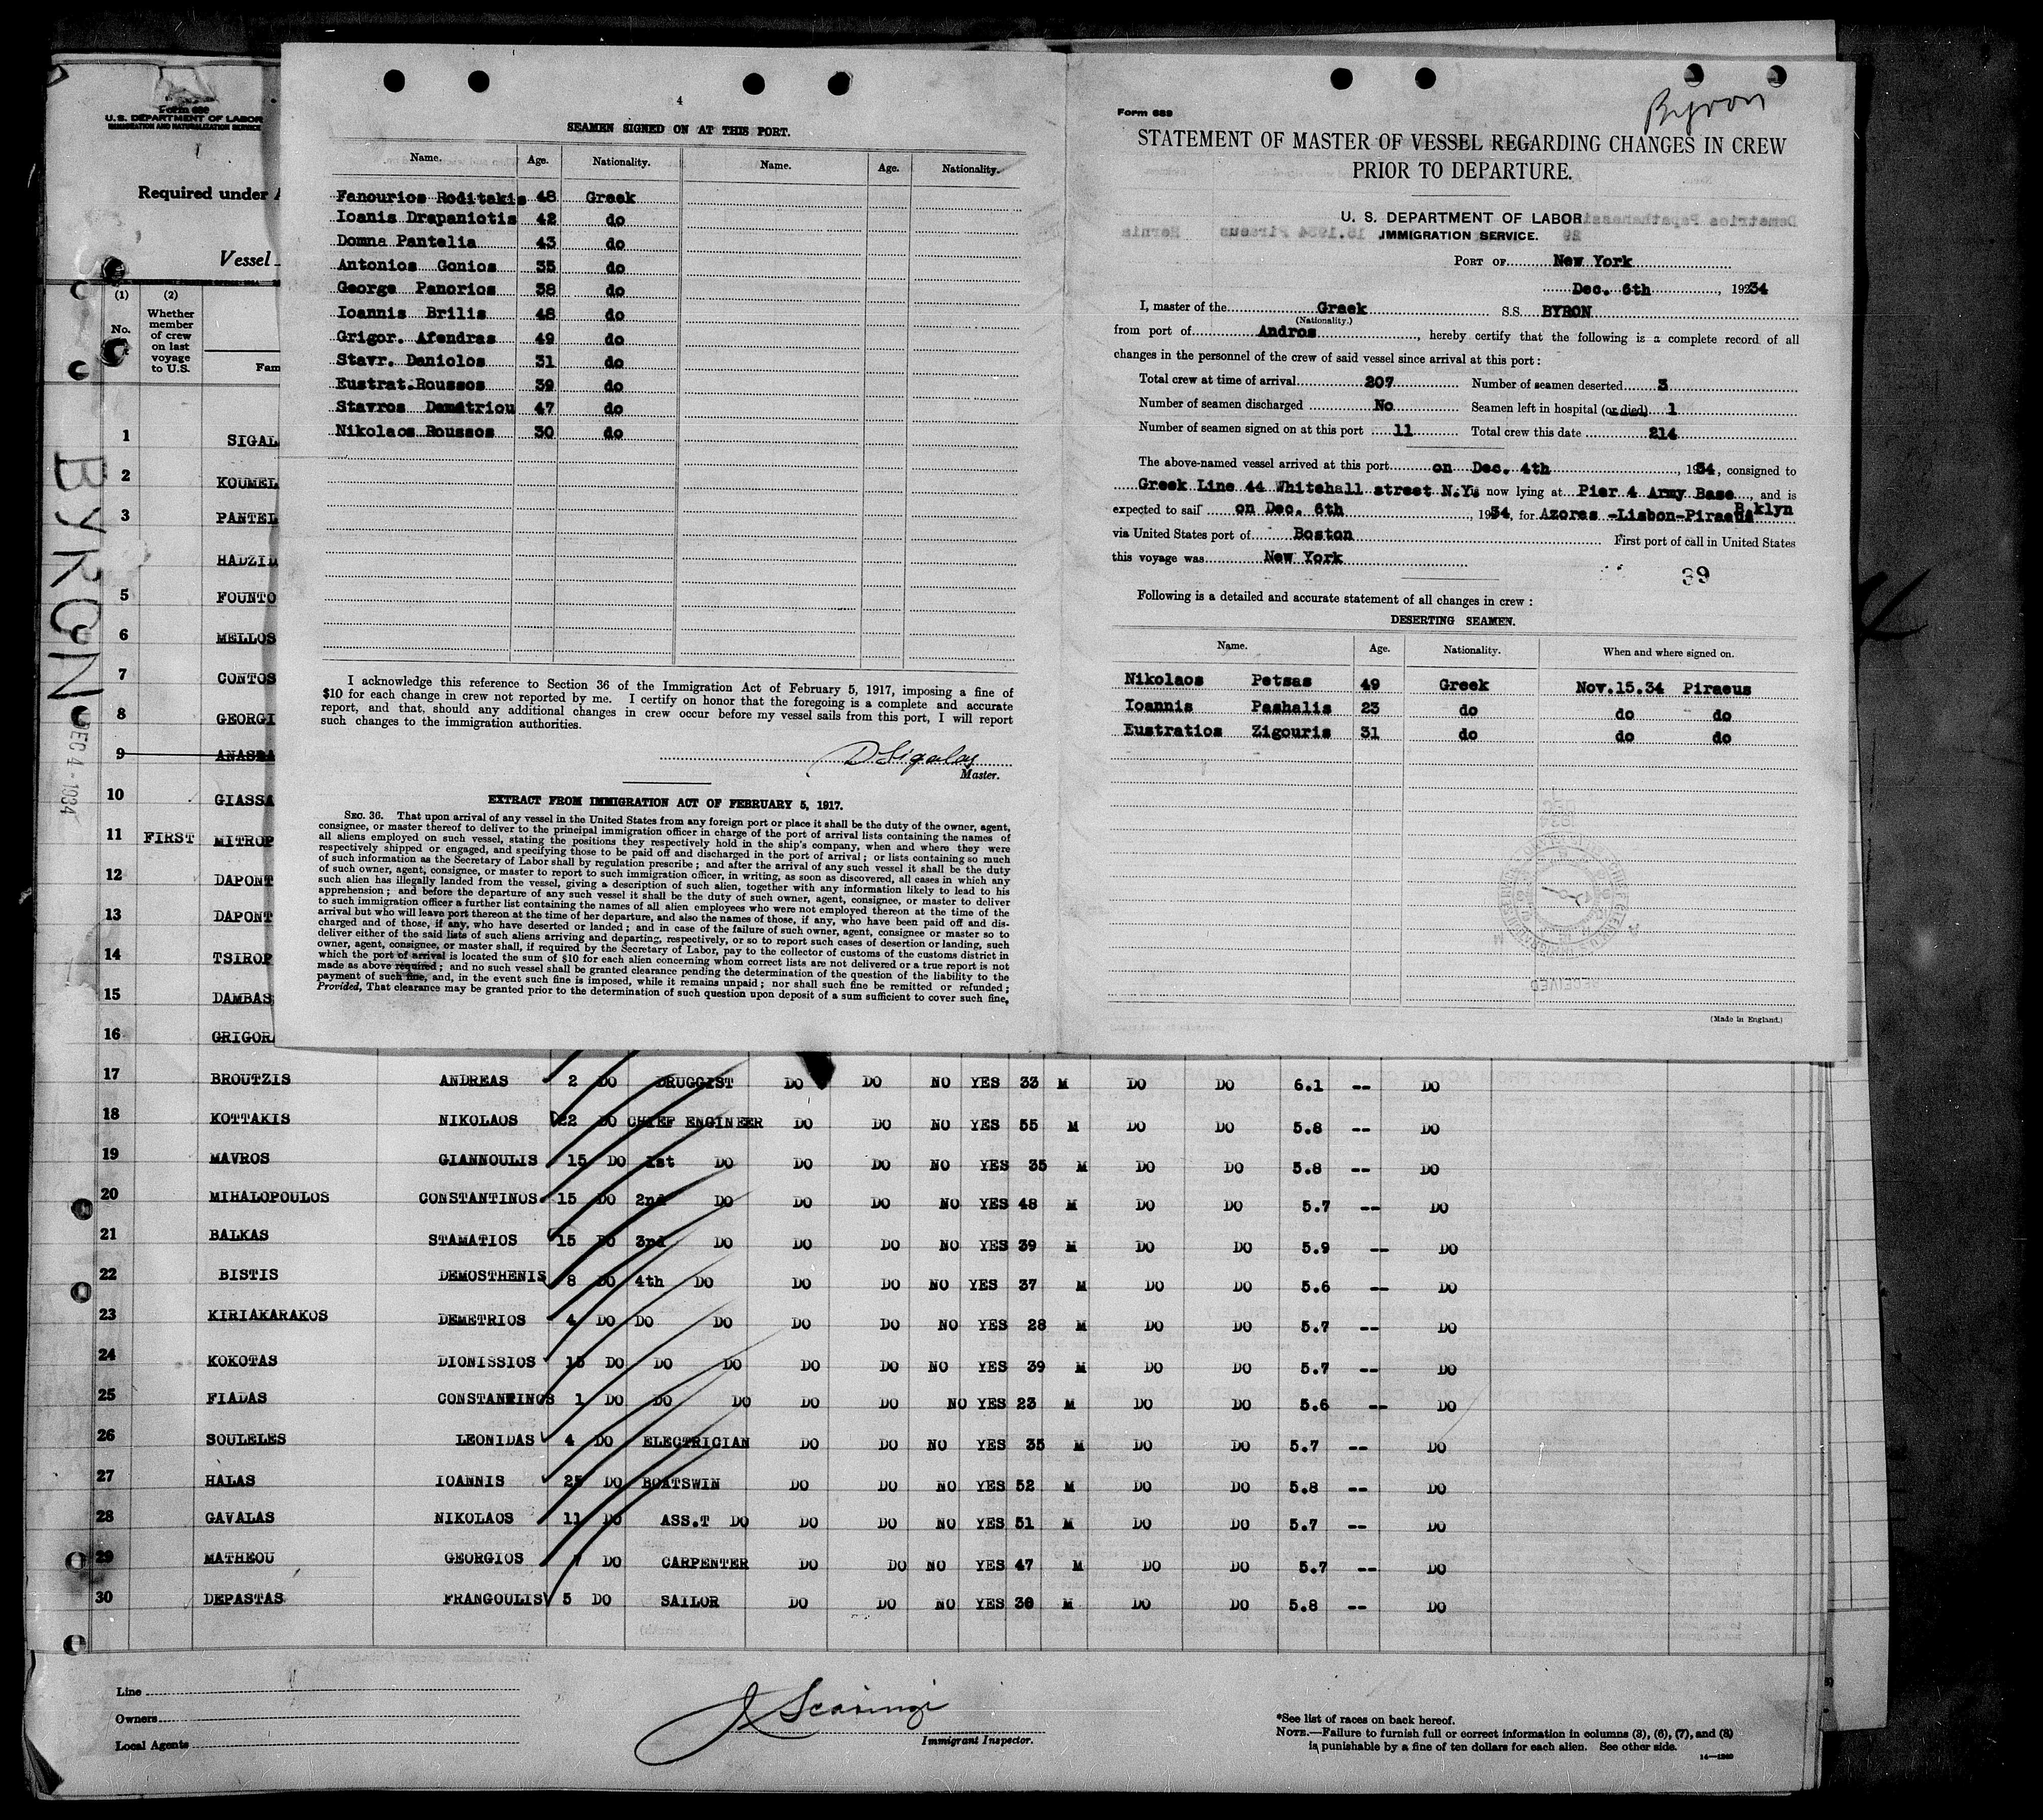 Form 680
U. S. DEPARTMENT OF LABOR
IMMIGRATION AND NATURALIZATION SERVICE
Required under A
Vessel
(1) (2)
No.
Whether
member
of crew
on last
voyage
to U.S.
Fam
BYRON
DEC 4 - 1934
1 SIGAL
2 KOUMEL
3 PANTEL
HADZID
5 FOUNTO
6 MELLOS
7 CONTOS
8 GEORGI
9 ANASTA
10 GIASSA
11 FIRST MITROP
12 DAPONT
13 DAPONT
14 TSIROP
15 DAMBAS
16 GRIGORA
4
SEAMEN SIGNED ON AT THIS PORT.
Name. Age. Nationality. Name. Age. Nationality.
Fanourios Roditakis 48 Greek
Ioanis Drapaniotis 42 do
Domna Pantelia 43 do
Antonios Gonios 35 do
George Panorios 38 do
Ioannis Brilis 48 do
Grigor. Afendras 49 do
Stavr. Daniolos 31 do
Eustrat.Roussos 39 do
Stavros Demétriou 47 do
Nikolaos Roussos 30 do
I acknowledge this reference to Section 36 of the Immigration Act of February 5, 1917, imposing a fine of
$10 for each change in crew not reported by me. I certify on honor that the foregoing is a complete and accurate
report, and that, should any additional changes in crew occur before my vessel sails from this port, I will report
such changes to the immigration authorities.
D Sigalas
Master.
EXTRACT FROM IMMIGRATION ACT OF FEBRUARY 5, 1917.
SEC. 36. That upon arrival of any vessel in the United States from any foreign port or place it shall be the duty of the owner, agent,
consignee, or master thereof to deliver to the principal immigration officer in charge of the port of arrival lists containing the names of
all aliens employed on such vessel, stating the positions they respectively hold in the ship's company, when and where they were
respectively shipped or engaged, and specifying those to be paid off and discharged in the port of arrival; or lists containing so much
of such information as the Secretary of Labor shall by regulation prescribe; and after the arrival of any such vessel it shall be the duty
of such owner, agent, consignee, or master to report to such immigration officer, in writing, as soon as discovered, all cases in which any
such alien has illegally landed from the vessel, giving a description of such alien, together with any information likely to lead to his
apprehension; and before the departure of any such vessel it shall be the duty of such owner, agent, consignee, or master to deliver
to such immigration officer a further list containing the names of all alien employees who were not employed thereon at the time of the
arrival but who will leave port thereon at the time of her departure, and also the names of those, if any, who have been paid off and dis-
charged and of those, if any, who have deserted or landed; and in case of the failure of such owner, agent, consignee or master so to
deliver either of the said lists of such aliens arriving and departing, respectively, or so to report such cases of desertion or landing, such
owner, agent, consignee, or master shall, if required by the Secretary of Labor, pay to the collector of customs of the customs district in
which the port of arrival is located the sum of $10 for each alien concerning whom correct lists are not delivered or a true report is not
made as above required; and no such vessel shall be granted clearance pending the determination of the question of the liability to the
payment of such fine, and, in the event such fine is imposed, while it remains unpaid; nor shall such fine be remitted or refunded;
Provided, That clearance may be granted prior to the determination of such question upon deposit of a sum sufficient to cover such fine,
Byron
Form 689
STATEMENT OF MASTER OF VESSEL REGARDING CHANGES IN CREW
PRIOR TO DEPARTURE.
U. S. DEPARTMENT OF LABOR
IMMIGRATION SERVICE.
PORT OF New York
Dec. 6th, 19234
I, master of the Greek S.S. BYRON
(Nationality.)
from port of Andros, hereby certify that the following is a complete record of all
changes in the personnel of the crew of said vessel since arrival at this port:
Total crew at time of arrival 207 Number of seamen deserted 3
Number of seamen discharged No Seamen left in hospital (or died) 1
Number of seamen signed on at this port 11 Total crew this date 214
The above-named vessel arrived at this port on Dec. 4th, 1934, consigned to
Greek Line 44 Whitehall street N.Y. now lying at Pier 4 Army Base, and is
B.klyn
expected to sail on Dec. 6th, 1934, for Azores -Lisbon-Piraeus
via United States port of Boston First port of call in United States
this voyage was New York
39
Following is a detailed and accurate statement of all changes in crew:
DESERTING SEAMEN.
Name. Age. Nationality. When and where signed on.
Nikolaos Petsas 49 Greek Nov.15.34 Piraeus
Ioannis Pashalis 23 do do do
Eustratios Zigouris 31 do do do
(Made in England.)
17 BROUTZIS ANDREAS 2 DO DRUGGIST DO DO NO YES 33 M DO DO 6.1 -- DO
18 KOTTAKIS NIKOLAOS 22 DO CHIEF ENGINEER DO DO NO YES 55 M DO DO 5.8 -- DO
19 MAVROS GIANNOULIS 15 DO 1st DO DO DO NO YES 35 M DO DO 5.8 -- DO
20 MIHALOPOULOS CONSTANTINOS 15 DO 2nd DO DO DO NO YES 48 M DO DO 5.7 -- DO
21 BALKAS STAMATIOS 15 DO 3rd DO DO DO NO YES 39 M DO DO 5.9 -- DO
22 BISTIS DEMOSTHENIS 8 DO 4th DO DO DO NO YES 37 M DO DO 5.6 -- DO
23 KIRIAKARAKOS DEMETRIOS 4 DO DO DO DO DO NO YES 28 M DO DO 5.7 -- DO
24 KOKOTAS DIONISSIOS 15 DO DO DO DO DO NO YES 39 M DO DO 5.7 -- DO
25 FIADAS CONSTANTINOS 1 DO DO DO DO DO NO YES 23 M DO DO 5.6 -- DO
26 SOULELES LEONIDAS 4 DO ELECTRICIAN DO DO NO YES 35 M DO DO 5.7 -- DO
27 HALAS IOANNIS 25 DO BOATSWIN DO DO NO YES 52 M DO DO 5.8 -- DO
28 GAVALAS NIKOLAOS 11 DO ASS.T DO DO DO NO YES 51 M DO DO 5.7 -- DO
29 MATHEOU GEORGIOS 7 DO CARPENTER DO DO NO YES 47 M DO DO 5.7 -- DO
30 DEPASTAS FRANGOULIS 5 DO SAILOR DO DO NO YES 30 M DO DO 5.8 -- DO
Line
Owners
Local Agents
Immigrant Inspector.
*See list of races on back hereof.
NOTE.—Failure to furnish full or correct information in columns (3), (6), (7), and (8)
is punishable by a fine of ten dollars for each alien. See other side.
14—1240